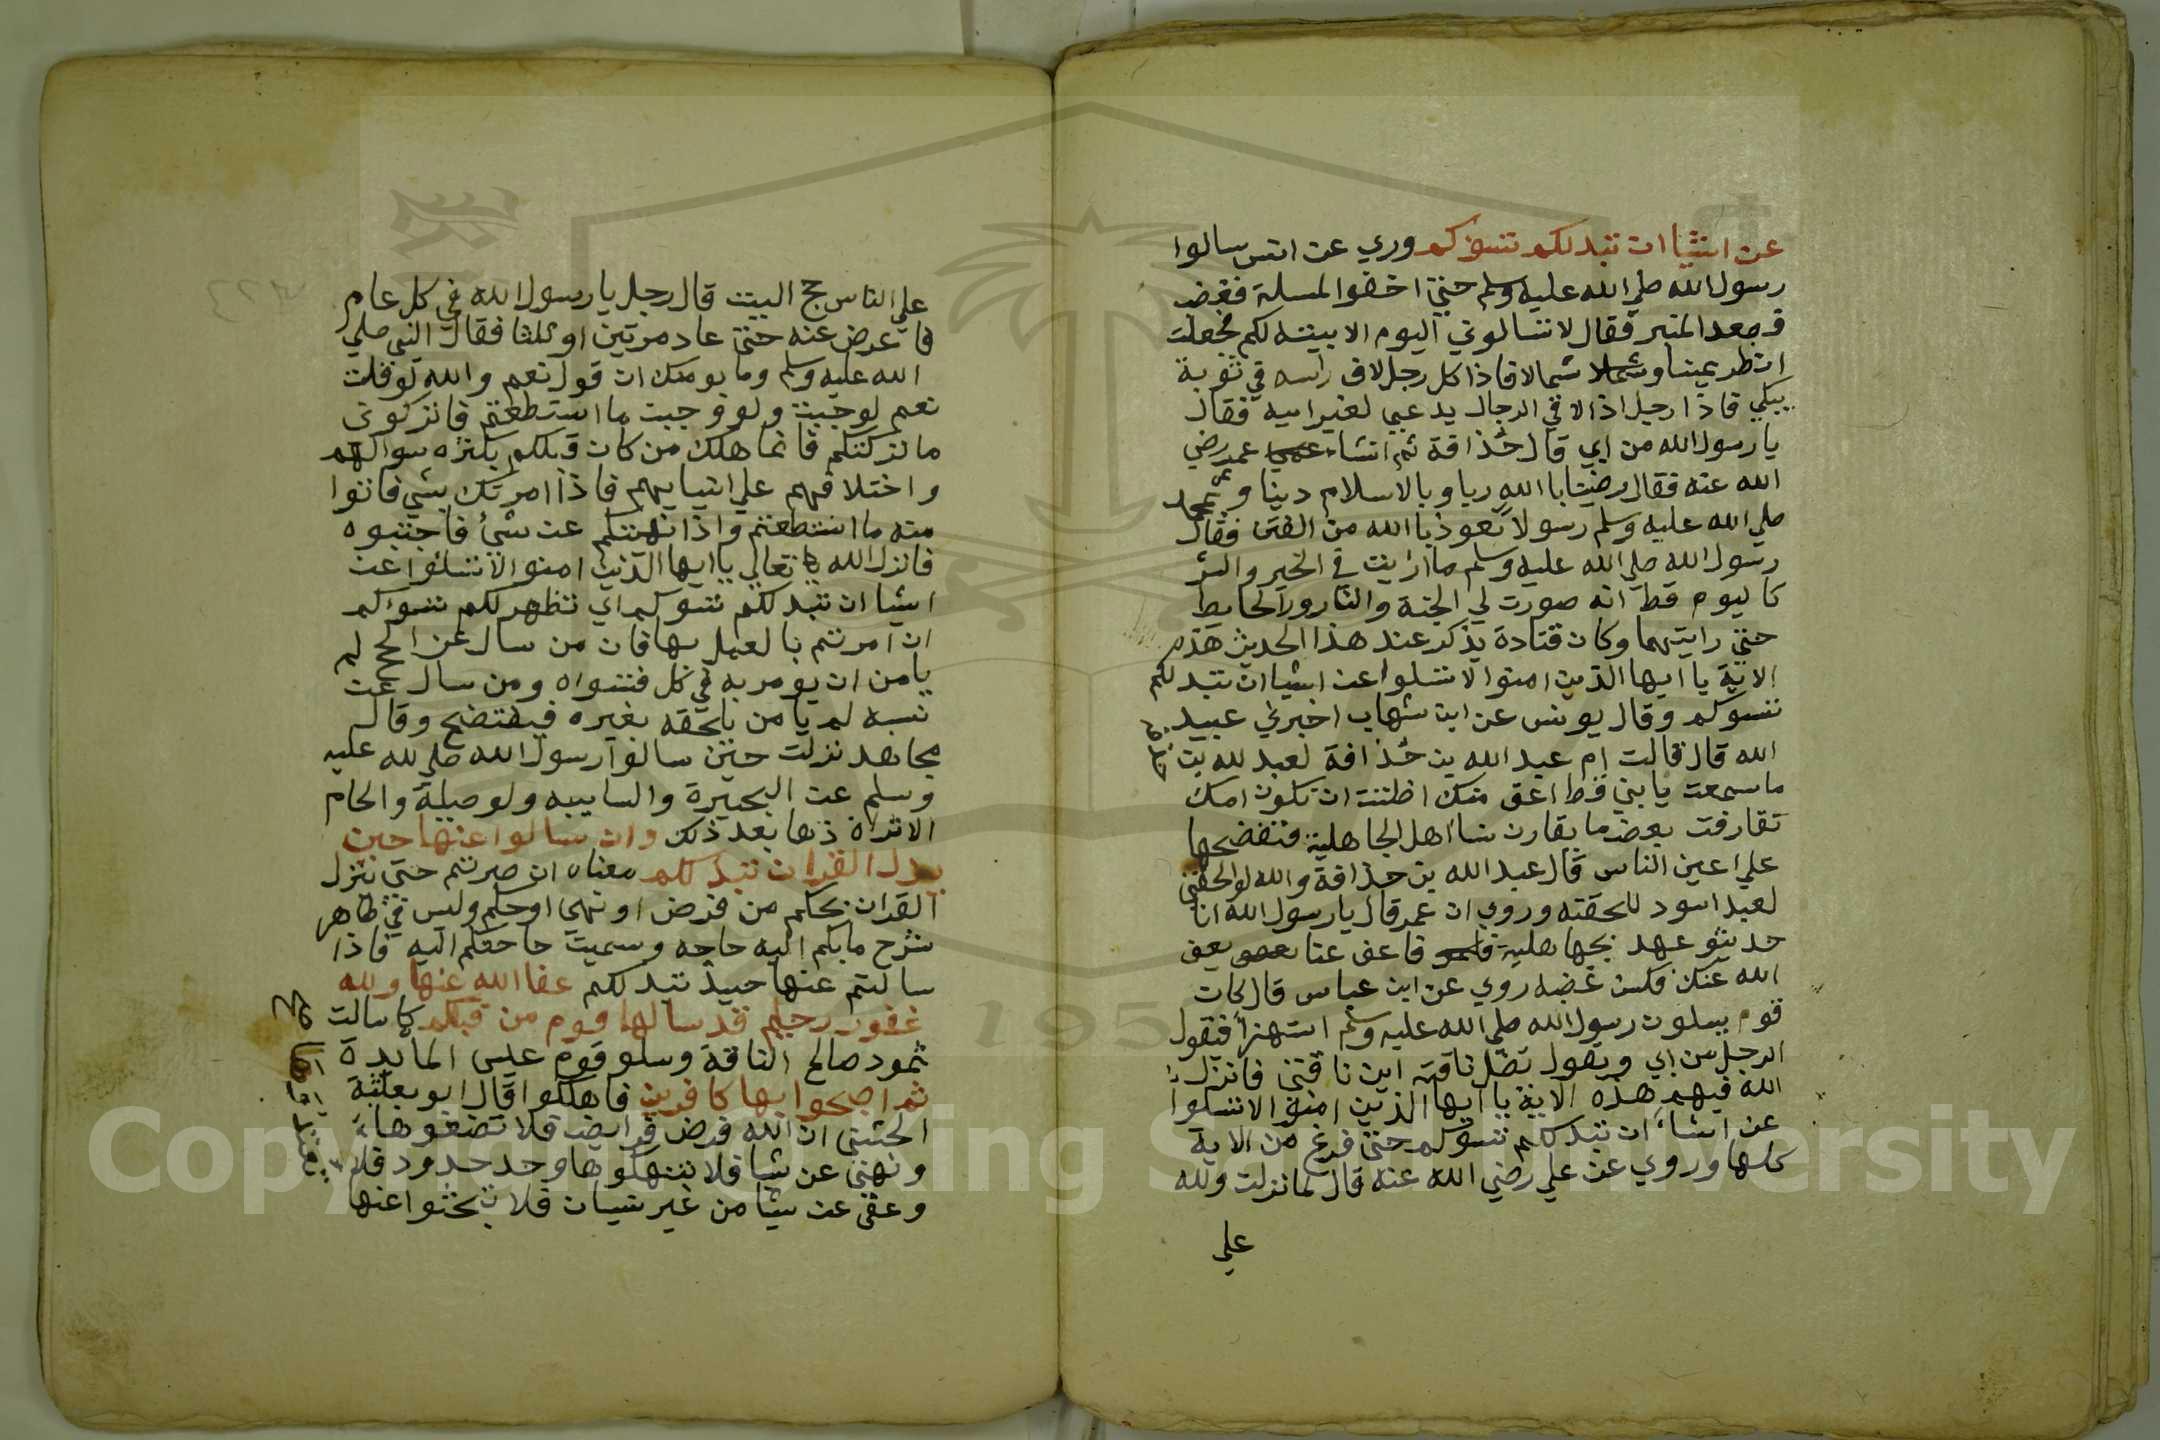 عن اشيا ان تبد لكم تسؤكم وروي عن انس سالوا
رسول الله صلي الله عليه وسلم حتي احفوا المسلة فغضب
فصعد المنبر فقال لا تسالوني اليوم الا بينته لكم فجعلت
انظر يمينا وشمالا فاذا كل رجل لاف راسه في ثوبه
يبكي فاذا رجل اذا لاقي الرجال يدعي لغير ابيه فقال
يا رسول الله من ابي قال حذافة ثم انشا عمر رضي
الله عنه فقال رضيت با الله ربا وبالاسلام دينا وبمحمد
صلي الله عليه وسلم رسولا نعوذ با الله من الفتن فقال
رسول الله صلي الله عليه وسلم ما رايت في الخير والشر
كاليوم قط انه صورت لي الجنة والنار ورا الحايط
حتي رايتهما وكان قتادة يذكر عند هذا الحديث هذه
الاية يا ايها الذين امنوا لا تسلوا عن اشيا ان تبد لكم
تسوكم وقال يونس عن ابن شهاب اخبرني عبيد
الله قال قالت ام عبد الله بن حذافة لعبد لله بن حذافه
ما سمعت يابني قط اعق منك اظننت ان تكون امك
تقارفت بعض ما يقارن نسا اهل الجاهلية فتفضحها
علي اعين الناس قال عبد الله بن حذافة والله لو الحقني
لعبد اسود للحقته وروي ان عمر قال يا رسول الله انا
حديثو عهد بجهاهلية فاعف عنا يعف
الله عنك فسكن غضبه روي عن ابن عباس قال كان
قوم يسلون رسول الله صلي الله عليه وسلم استهزا فيقول
الرجل من ابي ويقول تضل ناقته اين ناقتي فانزل
الله فيهم هذه الاية يا ايها الذين امنوا لا تسلوا
عن اشيا ان تبد لكم تسؤكم حتي فرغ من الاية
كلها وروي عن علي رضي الله عنه قال لما نزلت ولله
علي
علي الناس حج البيت قال رجل يا رسول الله في كل عام
فاعرض عنه حتي عاد مرتين او ثلثا فقال النبي صلي
الله عليه وسلم وما يومنك ان قول نعم والله لو قلت
نعم لوجبت ولو وجبت ما استطعتم فاتركوني
ما تركتكم فانما هلك من كان قبلكم بكثره سوالهم
واختلافهم علي انبيايهم فاذا امرتك بشي فاتوا
منه ما استطعتم واذا نهيتكم عن شئ فاجتنبوه
فانزل الله تعالي يا ايها الذين امنوا لا تسئلوا عن
اشيا ان تبد لكم تسوكم اي تظهر لكم تسؤكم
ان امرتم بالعمل بها فان من سال عن الحج لم
يامن ان يومر به في كل فتسواه ومن سال عن
نسبه لم يامن يلحقه بغيره فيفتضح وقال
مجاهد نزلت حين سالوا رسول الله صلي لله عليه
وسلم عن البحيرة والساييبه ولوصيلة والحام
الا تراه ذها بعد ذلك وان سالوا عنها حين
ينزل القران تبد لكم معناه ان صبرتم حتي ينزل
القران بحكم من فرض او نهي او حكم وليس في ظاهر
شرح مابكم اليه حاجه وسميت حاحتكم اليه فاذا
سالتم عنها حيينذ تبد لكم عفا الله عنها ولله
غفور رحيم قد سالها قوم من قبلكم كما سالت
ثمود صالح الناقة وسلو قوم عيسي المايدة
ثم اصبحوا بها كافرين فاهلكوا قال ابو بعلثة
الخشني ان الله فرض فرايض فلا تضيعوها
ونهي عن شيا فلا تنتهكوها وحد حدود فلا
وعفي عن شيا من غير نسيان فلا تبحثوا عنها